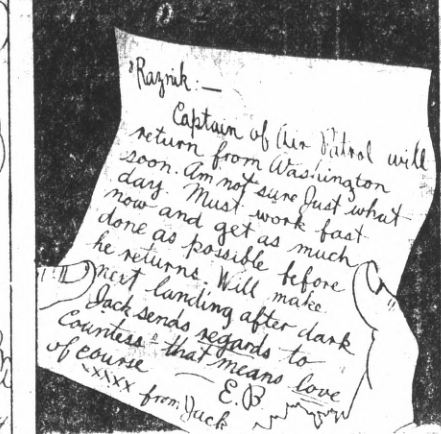 "Raznik:—
Captain of Air Patrol will
return from Washington
soon. Am not sure Just what
day. Must work fast
now and get as much
done as possible before
he returns. Will make
next landing after dark
Jack sends regards to
Countess - that means love
of course E.B.
xxxxx from Jack